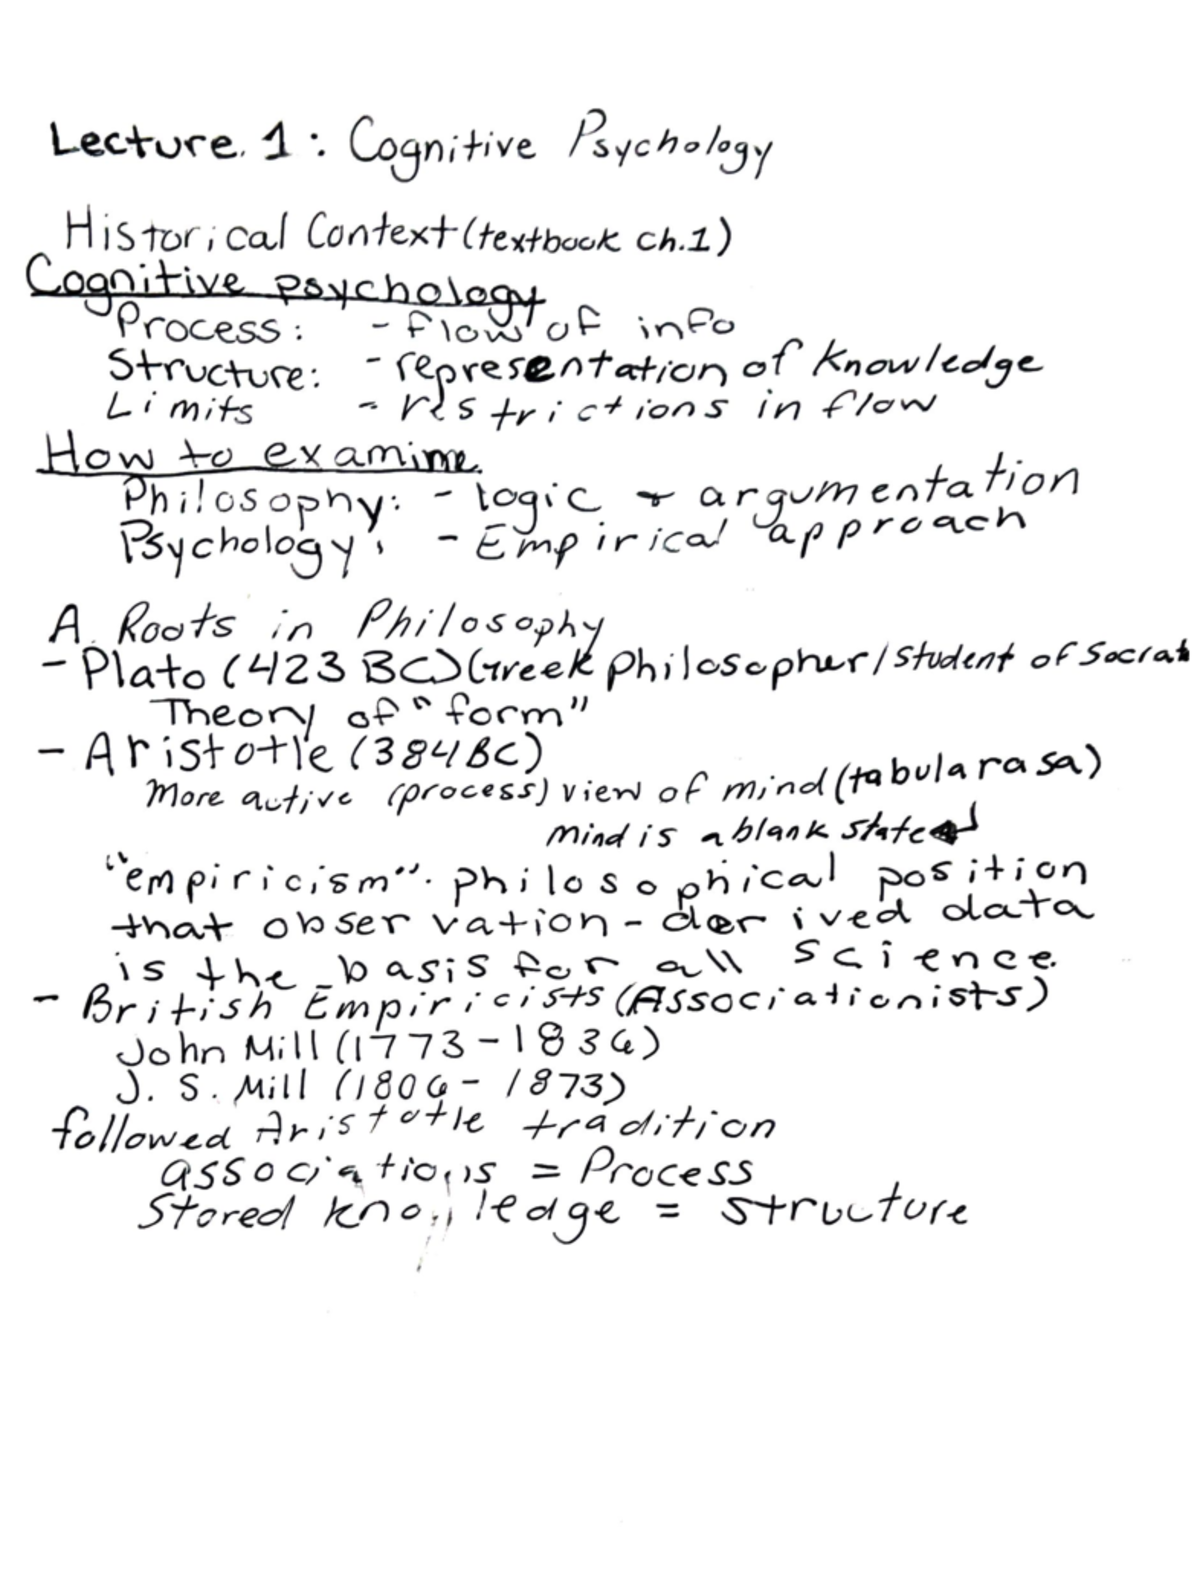 Lecture. 1: Cognitive Psychology
Historical Context (textbook ch.1)
Cognitive psychology
Process: - flow of info
Structure: - representation of knowledge
Limits - restrictions in flow
How to examine.
Philosophy: - logic + argumentation
Psychology: - Empirical approach
A. Roots in Philosophy
- Plato (423 BC) Greek philosopher/student of Socrat
Theory of "form"
- Aristotle (384 BC)
More active (process) view of mind (tabula rasa)
mind is a blank state
"empiricism". philosophical position
that observation-derived data
is the basis for all science.
- British Empiricists (Associationists)
John Mill (1773-1836)
J. S. Mill (1806-1873)
followed Aristotle tradition
associations = Process
Stored knowledge = structure